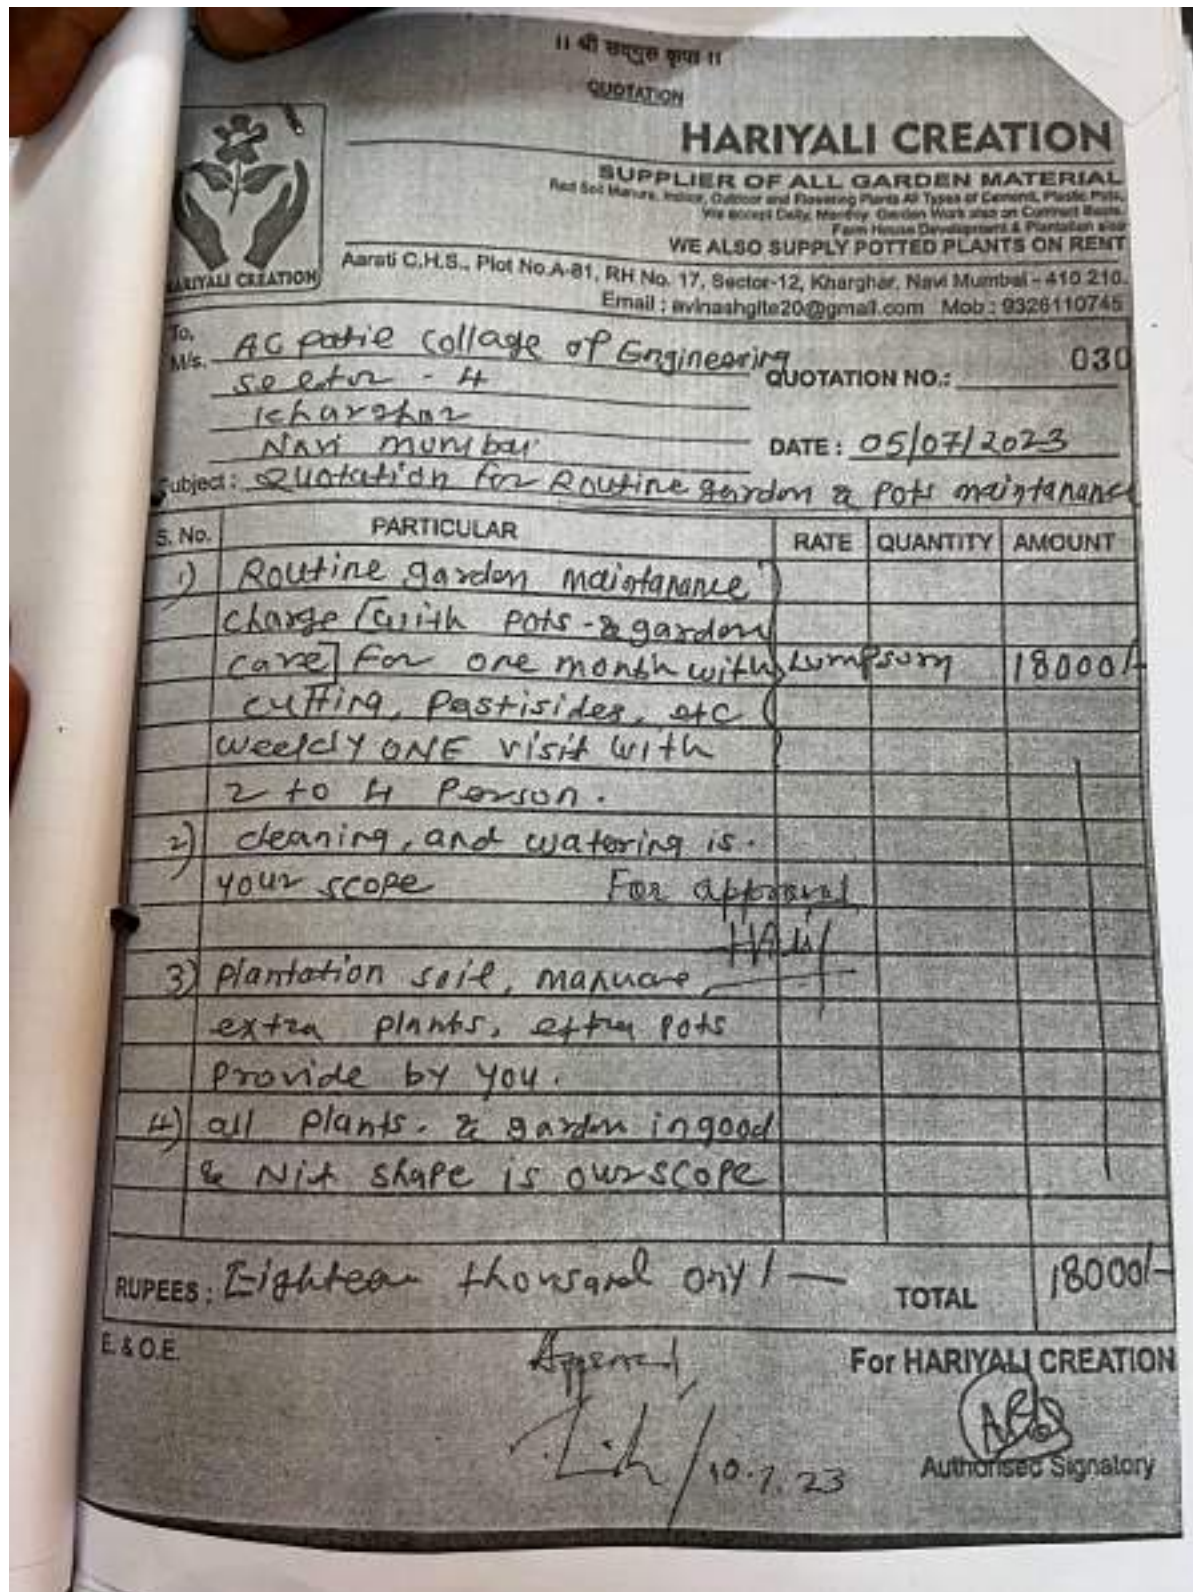 ।। श्री सदगुरु कृपा ।।
QUOTATION
HARIYALI CREATION
SUPPLIER OF ALL GARDEN MATERIAL
Red Soil Manure, Indoor, Outdoor and Flowering Plants All Types of Cement, Plastic Pots,
We accept Daily, Monthly Garden Work also on Contract Basis.
Farm House Development & Plantation also
WE ALSO SUPPLY POTTED PLANTS ON RENT
HARIYALI CREATION
Aarati C.H.S., Plot No.A-81, RH No. 17, Sector-12, Kharghar, Navi Mumbai - 410 210.
Email : avinashgite20@gmail.com Mob : 9326110745
To,
M/s. AC patil Collage of Engineering
sector - 4
kharghar
Navi mumbai
QUOTATION NO.: 030
DATE : 05/07/2023
Subject : Quotation for Routine garden & pots maintanance
S. No. PARTICULAR RATE QUANTITY AMOUNT
1) Routine garden maintanance
charge [with pots - & garden
care] for one month with Lumpsum 18000/-
cutting, pastisides, etc
weekly ONE visit with
2 to 4 Person.
2) cleaning, and watering is.
your scope For approval
3) plantation soil, manuare,
extra plants, extra pots
provide by you.
4) all plants. & garden in good
& Nit shape is our scope
RUPEES : Eighteen thousand ony/- TOTAL 18000/-
E. & O.E.
Approved
10.7.23
For HARIYALI CREATION
Authorised Signatory